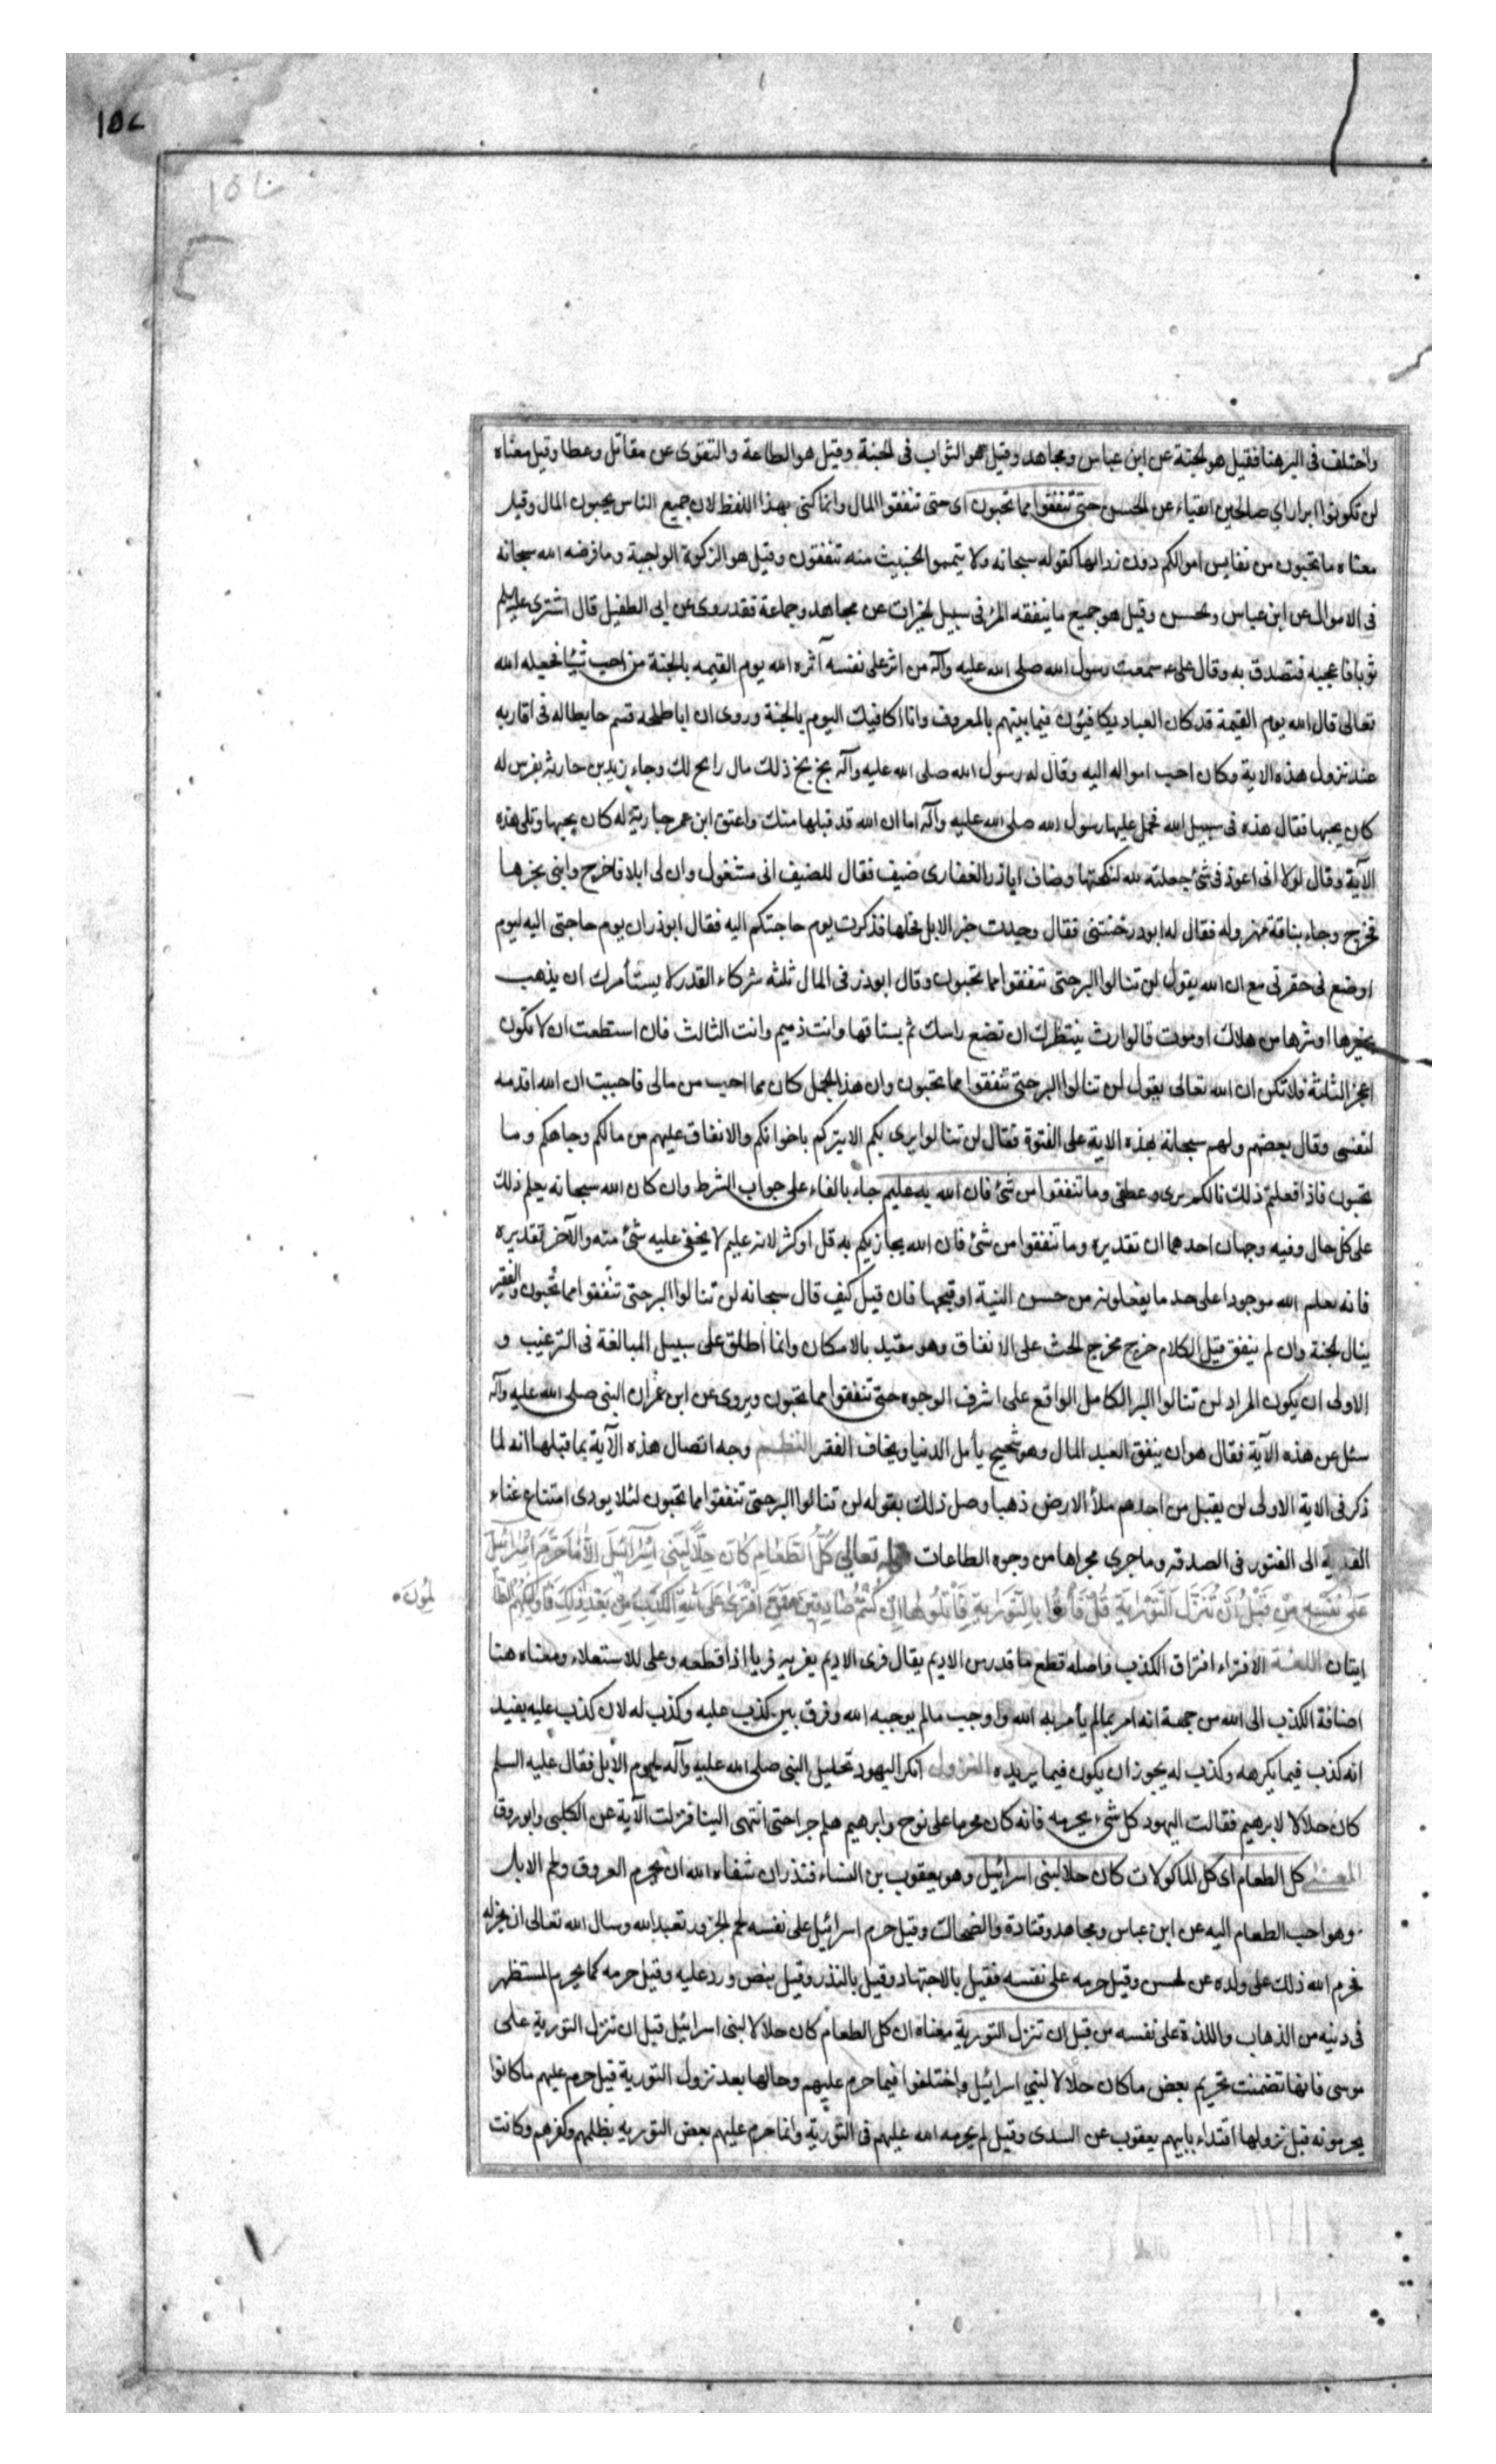 ١٥٢
واختلف فى البر هنا فقيل هو الجنة عن ابن عباس ومجاهد وقيل هو الثواب فى الجنة وقيل هو الطاعة والتقوى عن مقاتل وعطا وقيل معناه
لن تكونوا ابرارا اي صالحين اتقياء عن الحسن حتى تنفقوا مما تحبون اى حتى تنفقوا المال وانما كنى بهذا اللفظ لان جميع الناس يحبون المال وقيل
معناه ما تحبون من نفايس اموالكم دون رذالها كقوله سبحانه ولا تيمموا الخبيث منه تنفقون وقيل هو الزكوة الواجبة وما فرضه الله سبحانه
فى الاموال عن ابن عباس والحسن وقيل هو جميع ما ينفقه المرء فى سبيل الخيرات عن مجاهد وجماعة فقد روى عن ابى الطفيل قال اشترى على عليه السلم
ثوبا فاعجبه فتصدق به وقال على ع سمعت رسول الله صلى الله عليه وآله من اثر على نفسه آثره الله يوم القيمه بالجنة من احب شيئا فجعله الله
تعالى قال الله يوم القيمة قد كان العباد يكافئون فيما بينهم بالمعروف وانا اكافيك اليوم بالجنة وروى ان ابا طلحه قسم حايطا له فى اقاربه
عند نزول هذه الاية وكان احب امواله اليه وقال له رسول الله صلى الله عليه وآله بخ بخ ذلك مال رابح لك وجاء زيد بن حارثه بفرس له
كان يحبها فقال هذه فى سبيل الله فحمل عليها رسول الله صلى الله عليه وآله اما ان الله قد قبلها منك واعتق ابن عمر جارية له كان يحبها وتلى هذه
الآية وقال لولا انى اعوذ فى شئ جعلته لله لنكحتها وضاف اباذر الغفارى ضيف فقال للضيف انى مشغول وان لى ابلا فاخرج وابنى بخيرها
فخرج وجاء بناقة مهزوله فقال له ابوذر خنتنى فقال وجدت خير الابل فحلها فذكرت يوم حاجتكم اليه فقال ابوذر ان يوم حاجتى اليه ليوم
اوضع فى حفرتى مع ان الله يقول لن تنالوا البر حتى تنفقوا مما تحبون وقال ابوذر فى المال ثلثه شركاء القدر لا يستأمرك ان يذهب
بخيرها او شرها من هلاك او موت فالوارث ينتظرك ان تضع راسك ثم يستاقها وانت ذميم وانت الثالث فان استطعت ان لا تكون
اعجز الثلثة فلا تكن ان الله تعالى يقول لن تنالوا البر حتى تنفقوا مما تحبون وان هذا الجمل كان مما احب من مالى فاحببت ان الله اقدمه
لنفسى وقال بعضهم دلهم سبحانه بهذه الاية على الفتوة فقال لن تنالوا برى بكم الا ببركم باخوانكم والانفاق عليهم من مالكم وجاهكم وما
تحبون فاذا فعلتم ذلك نالكم برى وعطفى وما تنفقوا من شئ فان الله به عليم جاء بالفاء على جواب الشرط وان كان الله سبحانه يعلم ذلك
على كل حال وفيه وجهان احدهما ان تقديره وما تنفقوا من شئ فان الله يجازيكم به قل او كثر لانه عليم لا يخفى عليه شئ منه والآخر تقديره
فانه يعلم الله موجودا على حد ما يفعلونه من حسن النية او قبحها فان قيل كيف قال سبحانه لن تنالوا البر حتى تنفقوا مما تحبون والفقير
ينال الجنة وان لم ينفق قيل الكلام خرج مخرج الحث على الانفاق وهو مقيد بالامكان وانما اطلق على سبيل المبالغة فى الترغيب و
الاولى ان يكون المراد لن تنالوا البر الكامل الواقع على اشرف الوجوه حتى تنفقوا مما تحبون ويروى عن ابن عمر ان النبى صلى الله عليه وآله
سئل عن هذه الآية فقال هو ان ينفق العبد المال وهو شحيح يأمل الدنيا ويخاف الفقر النظم وجه اتصال هذه الآية بما قبلها انه لما
ذكر فى الاية الاولى لن يقبل من احدهم ملأ الارض ذهبا وصل ذلك بقوله لن تنالوا البر حتى تنفقوا مما تحبون لئلا يودى امتناع غناء
الفدية الى الفتور فى الصدقه وما جرى مجراها من وجوه الطاعات قوله تعالى كُلُّ الطَّعَامِ كَانَ حِلًّا لِبَنِى اِسْرَآئِيلَ اِلَّا مَا حَرَّمَ اِسْرَآئِيلُ
عَلَى نَفْسِهِ مِنْ قَبْلِ اَنْ تُنَزَّلَ التَّوْرَايةُ قُلْ فَأْتُوا بِالتَّوْرَايةِ فَاتْلُوهَا اِنْ كُنْتُمْ صَادِقِينَ فَمَنِ افْتَرَى عَلَى اللهِ الكَذِبَ مِنْ بَعْدِ ذَلِكَ فَاولَئِكَ هُمُ الظَّا
لمُونَ
ايتان اللغة الافتراء افتراق الكذب واصله قطع ما قدر من الاديم يقال فرى الاديم يفريه فريا اذا قطعه وعلى للاستعلاء ومعناه هنا
اضافة الكذب الى الله من جهة انه امر بما لم يأمر به الله واوجب ما لم يوجبه الله وفرق بين كذب عليه وكذب له لان كذب عليه يفيد
انه كذب فيما يكرهه وكذب له يجوز ان يكون فيما يريده النزول انكر اليهود تحليل النبى صلى الله عليه وآله لحوم الابل فقال عليه السلم
كان حلالا لابرهيم فقالت اليهود كل شئ نحرمه فانه كان محرما على نوح وابرهيم هلم جرا حتى انتهى الينا فنزلت الآية عن الكلبى وابو روق
المعنى كل الطعام اى كل الماكولات كان حلا لبنى اسرائيل وهو يعقوب بن النساء فنذر ان شفاه الله ان يحرم العروق ولحم الابل
وهو احب الطعام اليه عن ابن عباس ومجاهد وقتادة والضحاك وقيل حرم اسرائيل على نفسه لحم الجزور تعبدا لله وسال الله تعالى ان يجيز له
فحرم الله ذلك على ولده عن الحسن وقيل حرمه على نفسه فقيل بالاجتهاد وقيل بالنذر وقيل بنص ورد عليه وقيل حرمه كما يحرم المستظهر
فى دينه من الذهاب واللذة على نفسه من قبل ان تنزل التورية معناه ان كل الطعام كان حلالا لبنى اسرائيل قبل ان تنزل التورية على
موسى فانها تضمنت تحريم بعض ما كان حلالا لبني اسرائيل واختلفوا فيما حرم عليهم وحالها بعد نزول التورية قيل حرم عليهم ما كانوا
يحرمونه قبل نزولها اقتداء بابيهم يعقوب عن السدى وقيل لم يحرمه الله عليهم فى التورية وانما حرم عليهم بعض التورية بظلمهم وكفرهم وكانت